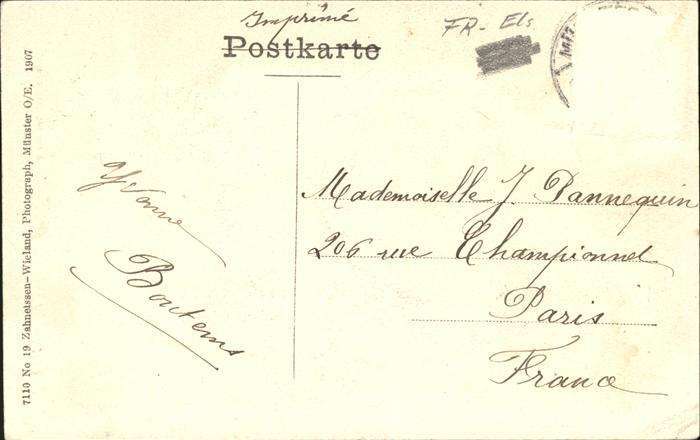 Imprimé
Postkarte
FR - Els
7110 No 19 Zahneissen-Wieland, Photograph, Münster O/E. 1907
Yvonne
Boutems
Mademoiselle J. Pannequin
206 rue Championnet
Paris
France